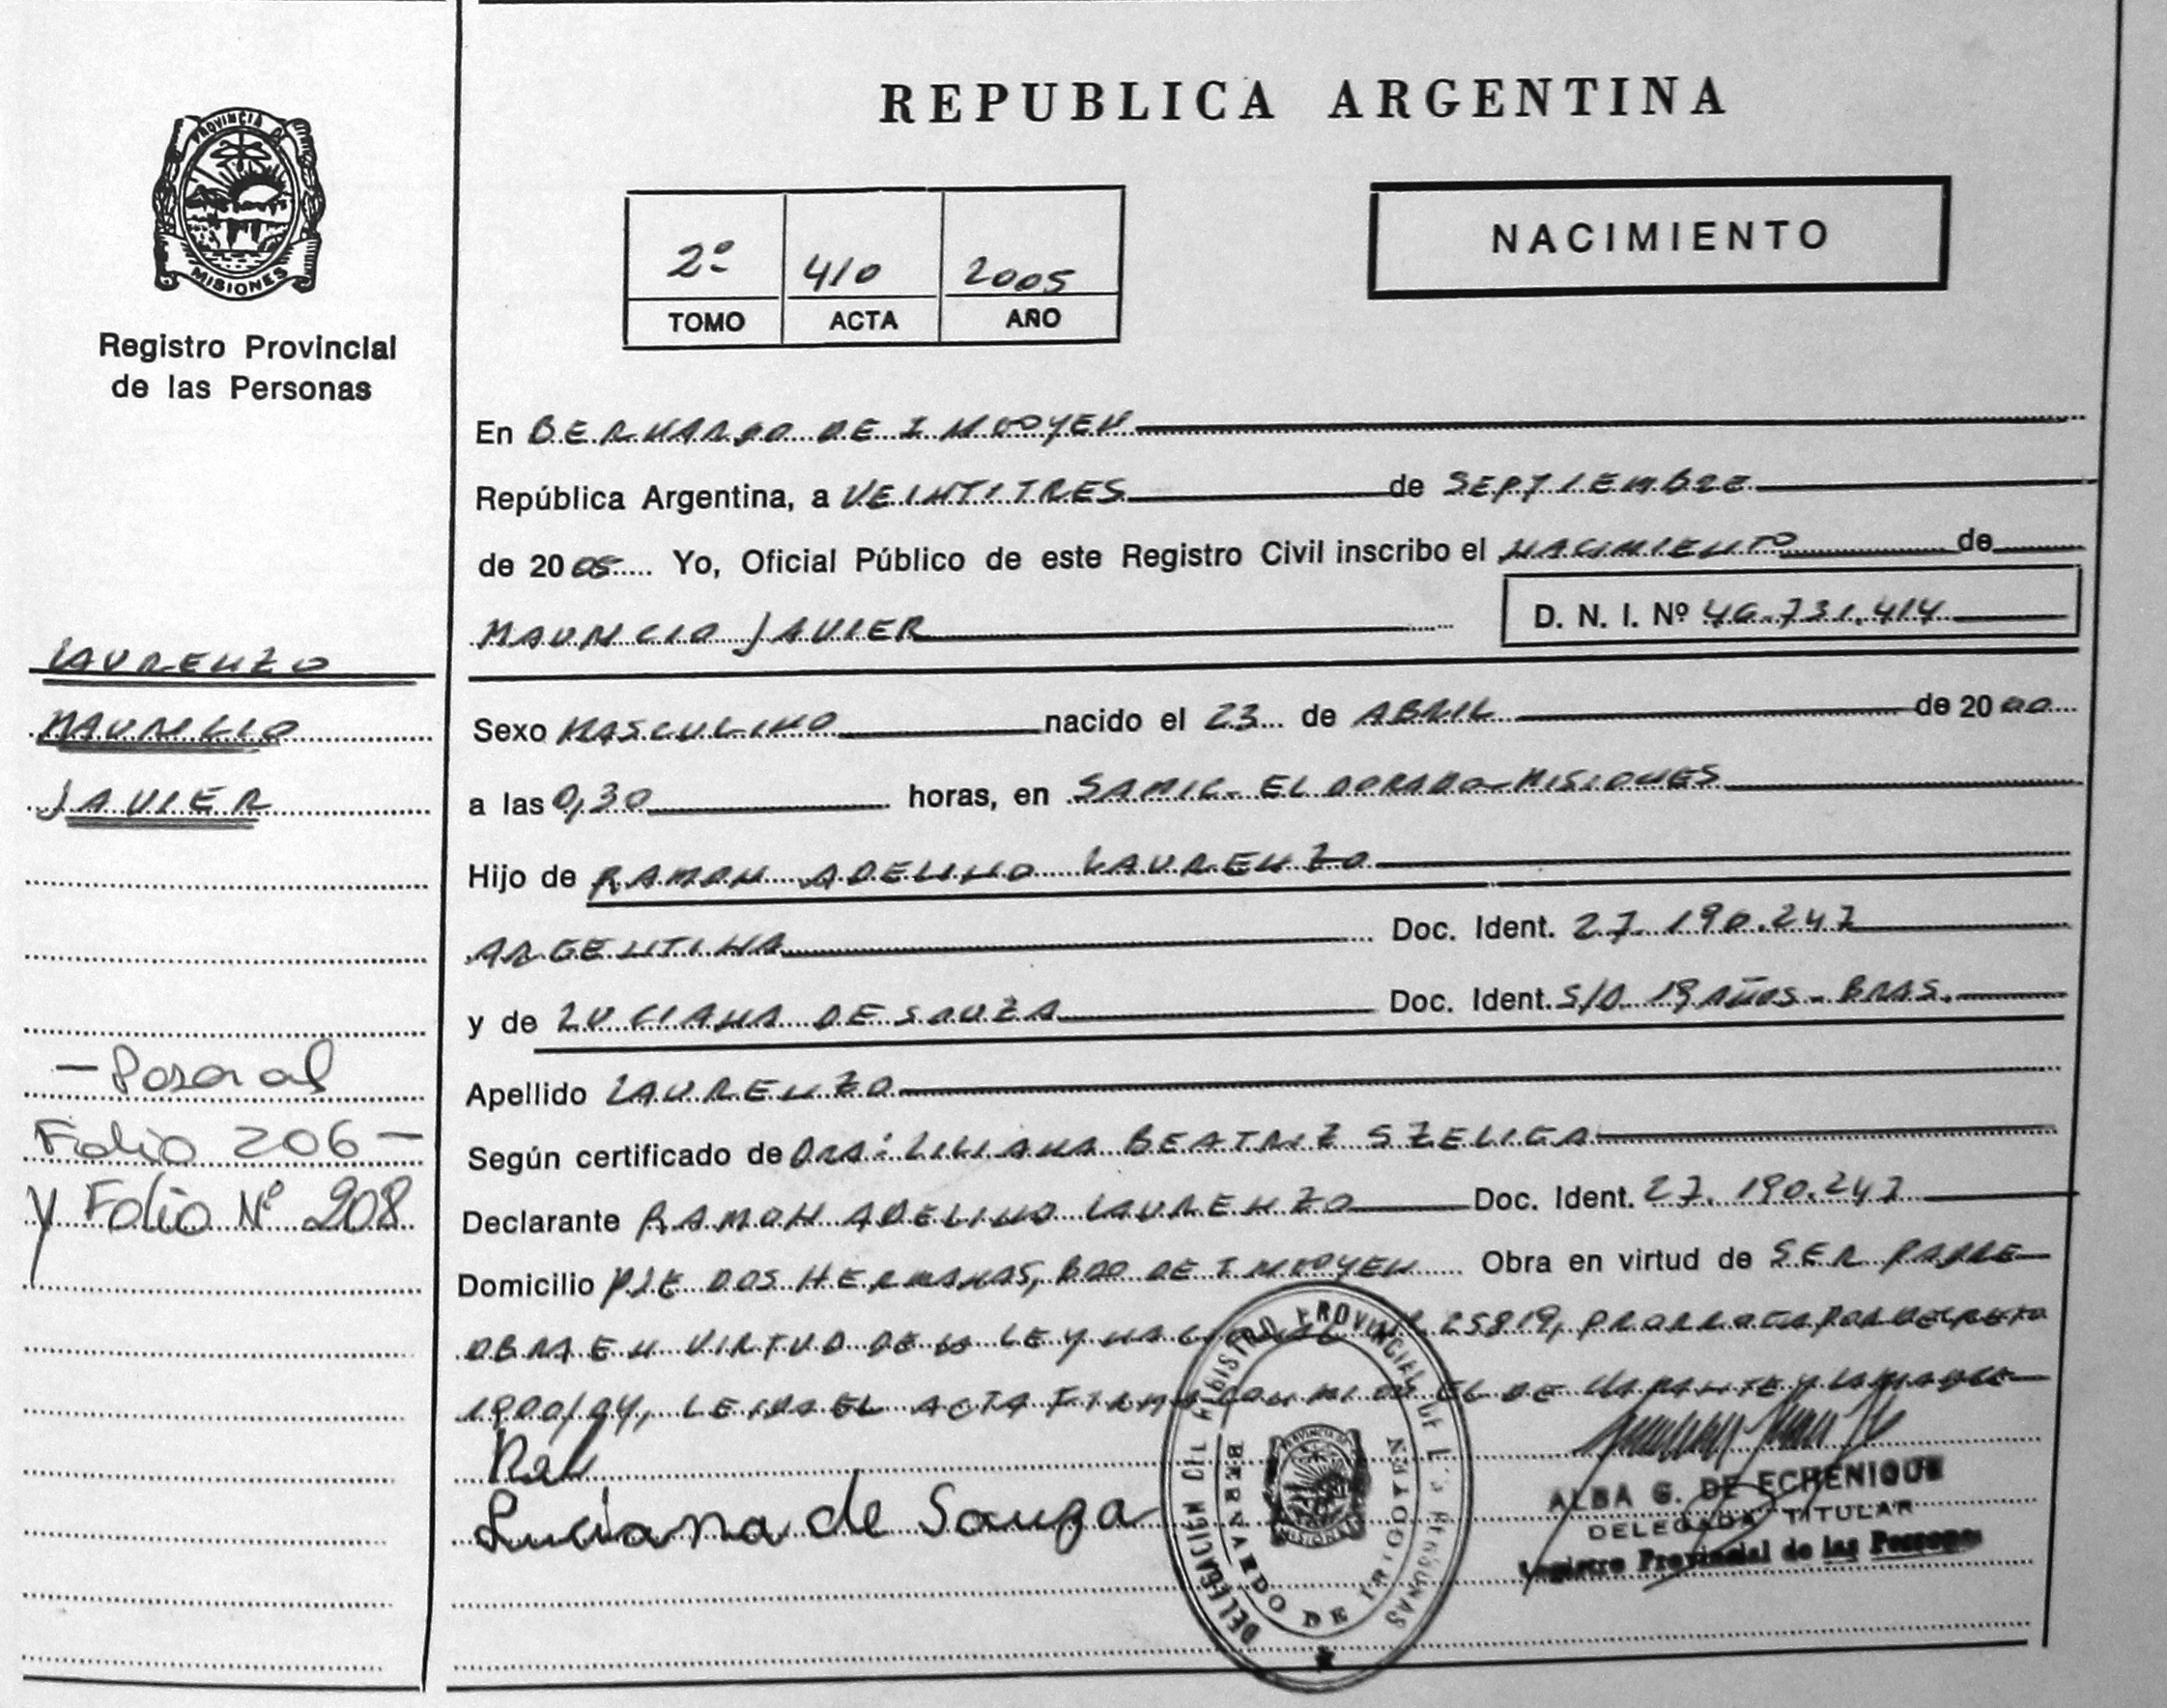 PROVINCIA DE
MISIONES
Registro Provincial
de las Personas
LAURENZO
MAURICIO
JAVIER
- Pasa al
Folio 206 -
y Folio Nº 208
REPUBLICA ARGENTINA
2º 410 2005
TOMO ACTA AÑO
NACIMIENTO
En BERNARDO DE IRIGOYEN
República Argentina, a VEINTITRES de SEPTIEMBRE
de 2005 Yo, Oficial Público de este Registro Civil inscribo el NACIMIENTO de
MAURICIO JAVIER D. N. I. Nº 46.731.414
Sexo MASCULINO nacido el 23 de ABRIL de 2000
a las 0,30 horas, en SAMIC- ELDORADO-MISIONES
Hijo de RAMON ADELINO LAURENZO
ARGENTINA Doc. Ident. 27.190.247
y de LUCIANA DE SOUZA Doc. Ident. S/D. 19 AÑOS - BRAS.
Apellido LAURENZO
Según certificado de Dra: LILIANA BEATRIZ SZELIGA
Declarante RAMON ADELINO LAURENZO Doc. Ident. 27.190.247
Domicilio PJE DOS HERMANAS, BDO DE IRIGOYEN Obra en virtud de SER PADRE
OBRA EN VIRTUD DE LA LEY NACIONAL 25819, PRORROGA POR DECRETO
LEIDA EL ACTA FIRMA CON MIGO EL DECLARANTE Y LA MADRE
Luciana de Souza
DELEGACION DEL REGISTRO PROVINCIAL DE LAS PERSONAS
BERNARDO DE IRIGOYEN
PROVINCIA DE
MISIONES
ALBA G. DE ECHENIQUE
DELEGADA TITULAR
Registro Provincial de las Personas